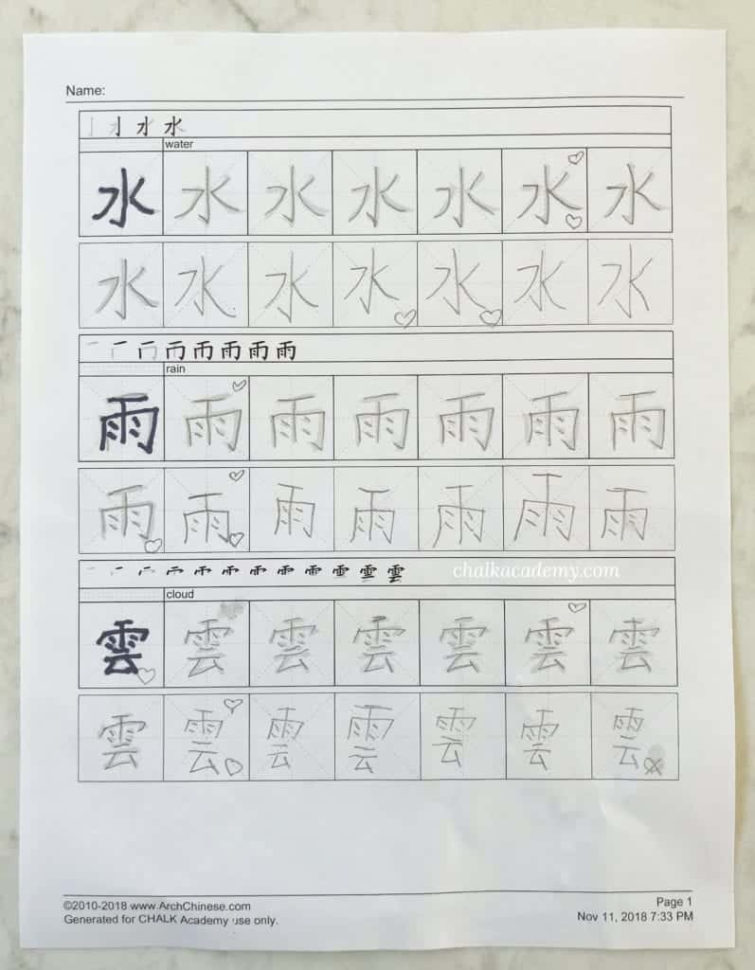 Name:
亅 刁 水 水
water
水 水 水 水 水 水 水
水 水 水 水 水 水 水
雨 雨 雨 雨 雨
rain
雨 雨 雨 雨 雨 雨 雨
雨 雨 雨 雨 雨 雨 雨
雲
chalkacademy.com
cloud
雲 雲 雲 雲 雲 雲 雲
雲 雲 雲 雲 雲 雲 雲
©2010-2018 www.ArchChinese.com
Page 1
Generated for CHALK Academy use only.
Nov 11, 2018 7:33 PM